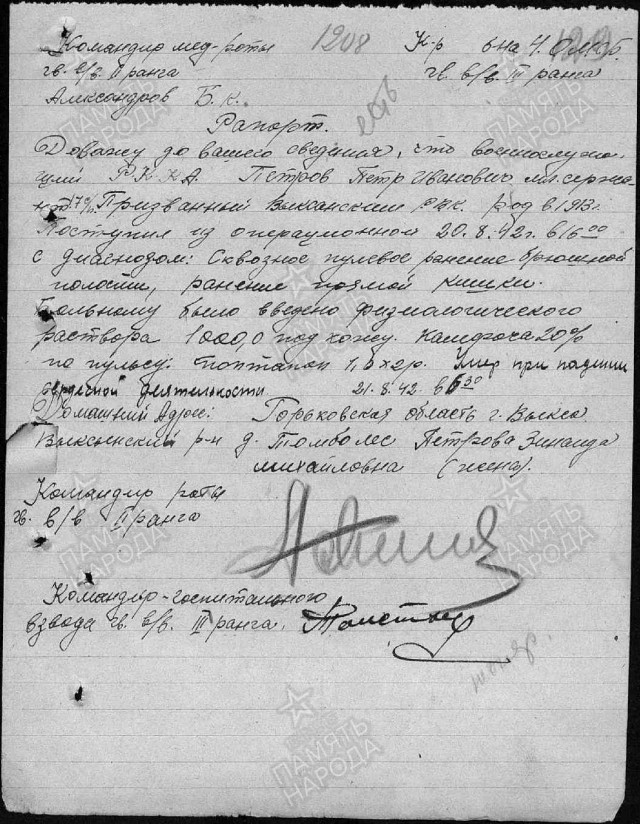 Командир мед-роты 1208 К-р
гв. в/в. II ранга гв. в/в. III ранга
Александров Б. К. есть
Рапорт.
Довожу до вашего сведения, что военнослужа-
щий Р.К.К.А. Петров Петр Иванович мл. сержа-
Призванный Выксанским РВК. род в 1913г
Поступил из операционной 20.8.42г. в 16 00
с диагнозом: Сквозное пулевое ранение брюшной
полости, ранение прямой кишки.
Больному было введено физиологического
раствора 1000,0 под кожу. Камфора 20%
по пульсу. Умер при падении
сердечной деятельности 21.8.42 в 6 30
Домашний Адрес: Горьковская область г. Выкса
Выксунский р-н д. Томболес Петрова Зинаида
михайловна (жена).
Командир роты
гв. в/в II ранга
Командир-госпитального
взвода гв. в/в. III ранга.
ПАМЯТЬ
НАРОДА